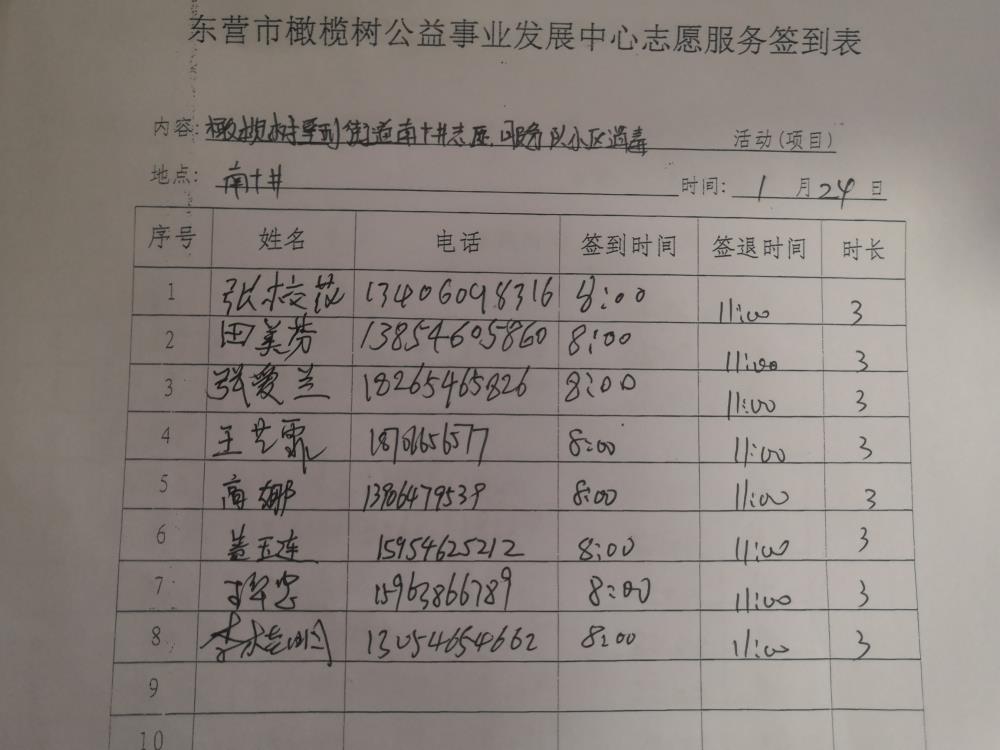 东营市橄榄树公益事业发展中心志愿服务签到表
内容: 橄榄树 街道南十井志愿服务队小区消毒 活动(项目)
地点: 南十井 时间: 1 月 24 日
序号 姓名 电话 签到时间 签退时间 时长
1 张 13406098316 8:00 11:00 3
2 田美芬 13854605860 8:00 11:00 3
3 张爱兰 18265465826 8:00 11:00 3
4 王艺霏 8:00 11:00 3
5 高娜 13906479539 8:00 11:00 3
6 盖玉连 15954625212 8:00 11:00 3
7 15963866789 8:00 11:00 3
8 李 13054654662 8:00 11:00 3
9
10